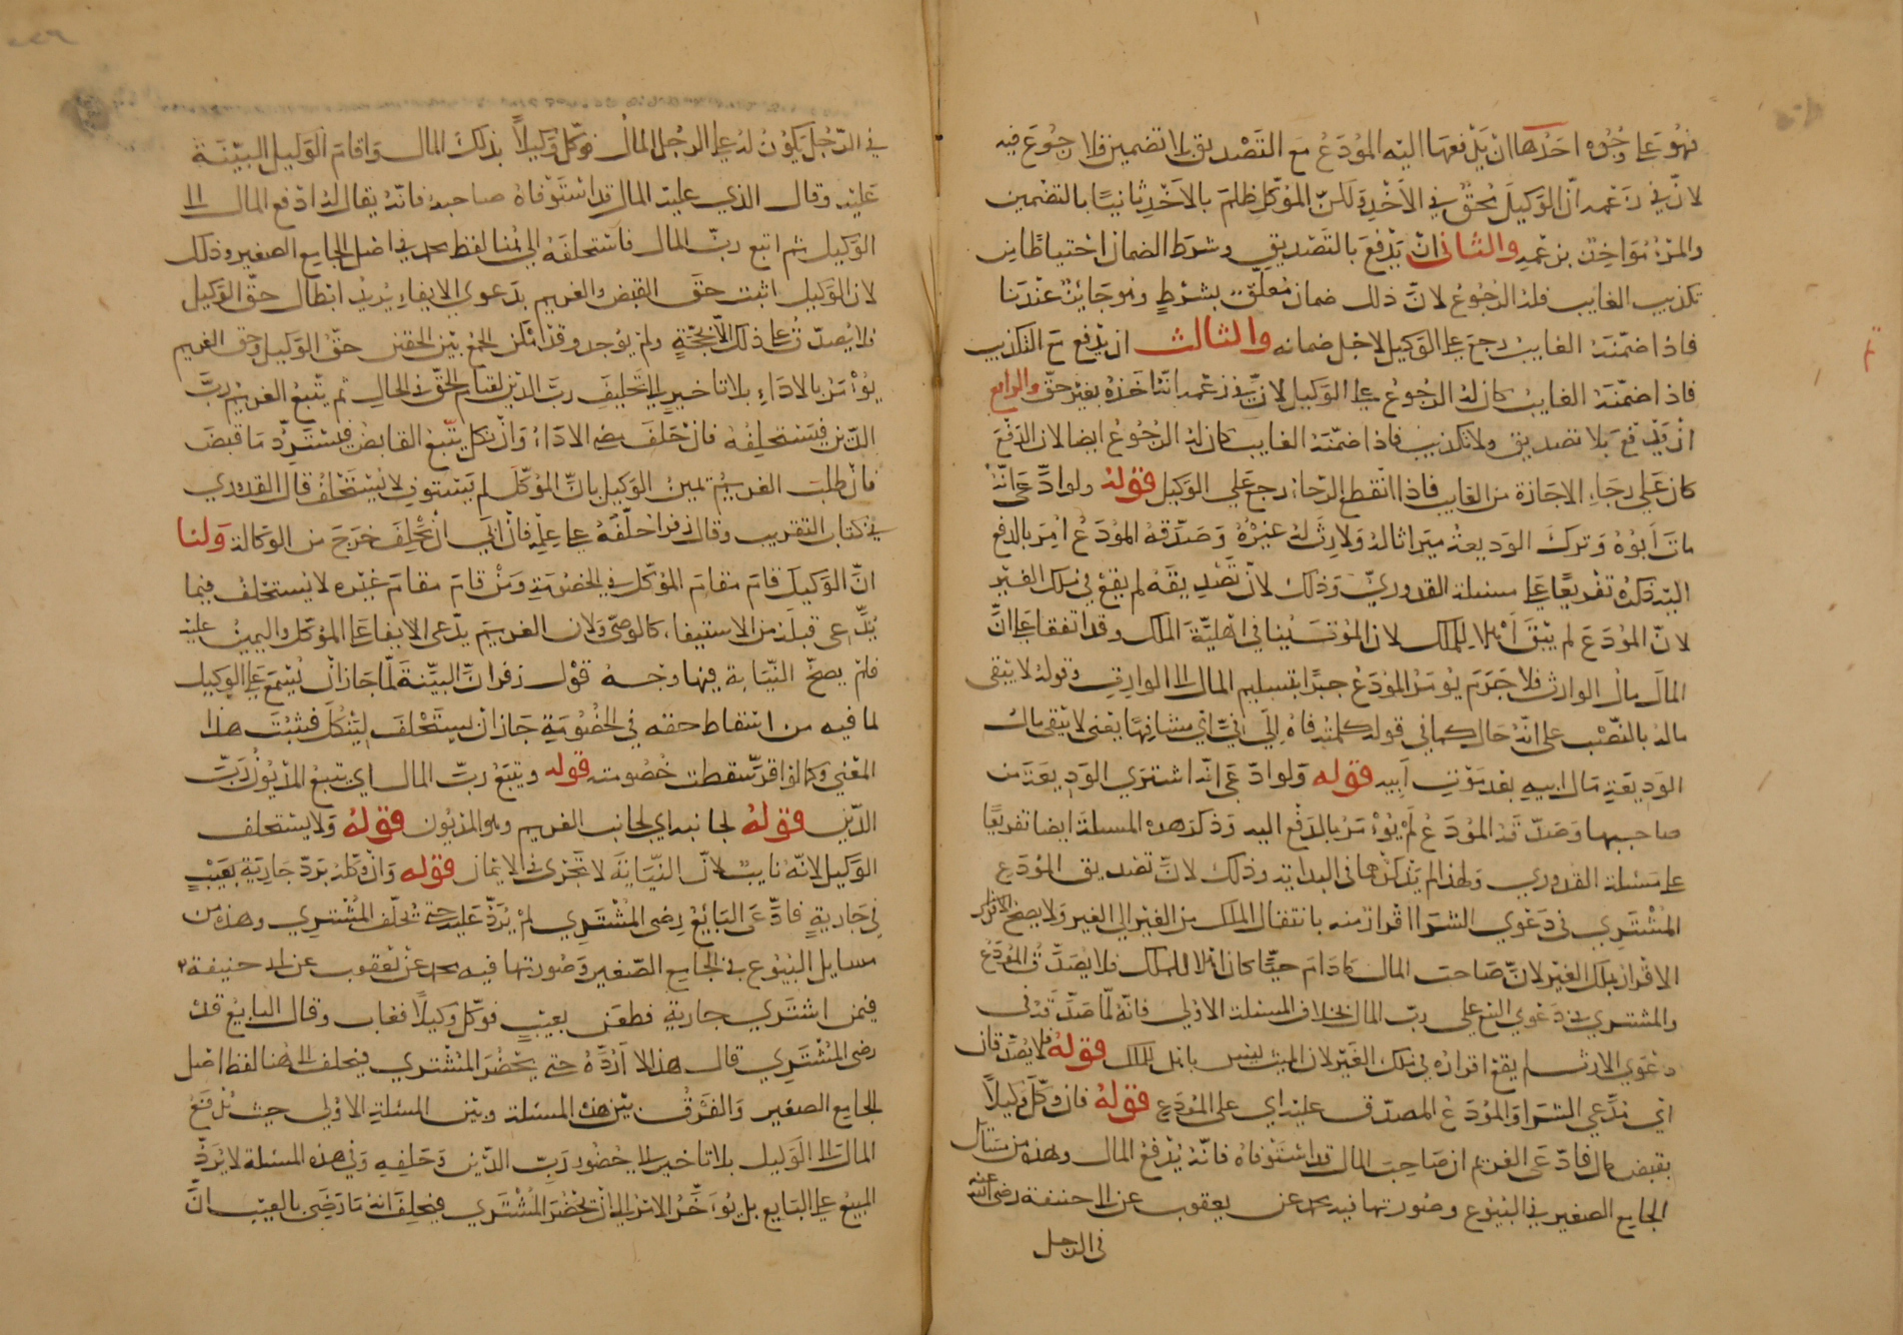 فهو على وجوه احدها ان يدفعها اليه المودع مع التصديق بلا تضمين فلا رجوع فيه
لان في زعمه ان الوكيل محق في الاخذ ولكن الموكل ظلم بالاخذ ثانيا بالتضمين
والمرء مواخذ بزعمه والثاني ان يدفع بالتصديق وشرط الضمان احتياطا من
تكذيب الغايب فله الرجوع لان ذلك ضمان معلق بشرط وهو جايز عندنا
فاذا ضمنه الغايب رجع على الوكيل لاجل ضمانه والثالث ان يدفع مع التكذيب
فاذا ضمنه الغايب كان له الرجوع على الوكيل لان في زعمه انه اخذه بغير حق والرابع
ان يدفع بلا تصديق ولا تكذيب فاذا ضمنه الغايب كان له الرجوع ايضا لان الدفع
كان على رجاء الاجازة من الغايب فاذا انقطع الرجاء رجع على الوكيل قوله ولو ادعى انه
مات ابوه وترك الوديعة ميراثا له ولا وارث له غيره وصدقه المودع امر بالدفع
اليه ذكره تفريعا على مسئلة القدوري وذلك لان تصديقه لم يقع في ملك الغير
لان المودع لم يبق اهلا للملك لان الموت ينافي اهلية الملك وقد اتفقا على ان
المال مال الوارث فلا جرم يومر المودع جبرا بتسليم المال الى الوارث وقوله لا يبقى
ماله بالنصب على انه حال كما في قوله كلمته فاه الى في اي مشافها يعني لا يبقى مال
الوديعة مال ابيه بعد موت ابيه قوله ولو ادعى انه اشترى الوديعة من
صاحبها وصدقه المودع لم يومر بالدفع اليه وذكر هذه المسئلة ايضا تفريعا
على مسئلة القدوري ولهذا لم يذكرها في البداية وذلك لان تصديق المودع
المشتري في دعوى الشرا اقرار منه بانتقال الملك من الغير الى الغير ولا يصح الاقرار
الاقرار بملك الغير لان صاحب المال ما دام حيا كان اهلا للملك فلا يصدق المودع
والمشتري في دعوى البيع على رب المال بخلاف المسئلة الاولى فانه لما صدقه في
دعوى الارث لم يقع اقراره في ملك الغير لان الميت ليس باهل للملك قوله فلا يصدقان
اي مدعي الشرا والمودع المصدق عليه اي على المودع قوله فان وكل وكيلا
بقبض مال فادعى الغريم ان صاحب المال قد استوفاه فانه يدفع المال وهذه من مسائل
الجامع الصغير في البيوع وصورتها فيه محمد عن يعقوب عن ابي حنيفة رضي الله عنه
في الرجل
في الرجل يكون له على الرجل المال فوكل وكيلا بذلك المال واقام الوكيل البينة
عليه وقال الذي عليه المال قد استوفاه صاحبه فانه يقال له ادفع المال الى
الوكيل ثم اتبع رب المال فاستحلفه الى هنا لفظ محمد في اصل الجامع الصغير وذلك
لان الوكيل اثبت حق القبض والغريم بدعوى الايفاء يريد ابطال حق الوكيل
فلا يصدق على ذلك الا بحجة ولم يوجد وقد امكن الجمع بين الحقين حق الوكيل وحق الغريم
يؤمر بالاداء بلا تاخير الى تحليف رب الدين لقيام الحق في الحال ثم يتبع الغريم رب
الدين فيستحلفه فان حلف مضى الاداء وان نكل يتبع القابض فيسترد ما قبض
فان طلب الغريم يمين الوكيل بان الموكل لم يستوف لا يستحلف قال القدوري
في كتاب التقريب وقال زفر احلفه على علمه فان ابى ان يحلف خرج من الوكالة ولنا
ان الوكيل قام مقام الموكل في الخصومة ومن قام مقام غيره لا يستحلف فيما
يدعى قبله من الاستيفا كالوصي ولان الغريم يدعى الايفا على الموكل واليمين عليه
فلم يصح النيابة فيها وجه قول زفر ان البينة لما جاز ان تسمع على الوكيل
لما فيه من اسقاط حقه في الخصومة جاز ان يستحلف لينكل فيثبت هذا
المعنى وكما لو اقر سقطت خصومته قوله ويتبع رب المال اي يتبع المديون رب
الدين قوله لجانبه اي لجانب الغريم وهو المديون قوله ولا يستحلف
الوكيل لانه نايب لان النيابة لا تجرى في الايمان قوله وان وكله برد جارية بعيب
في جارية فادعى البائع رضى المشتري لم يرد عليه حتى يحلف المشتري وهذه من
مسايل البيوع في الجامع الصغير وصورتها فيه محمد عن يعقوب عن ابي حنيفة
فيمن اشترى جارية فطعن بعيب فوكل وكيلا فغاب وقال البايع قد
رضى المشتري قال هذا لا ارده حتى يحضر المشتري فيحلف الى هنا لفظ اصل
الجامع الصغير والفرق بين هذه المسئلة وبين المسئلة الاولى حيث يدفع
المال الى الوكيل بلا تاخير الى حضور رب الدين وحلفه وفي هذه المسئلة لا يرد
المبيع على البايع بل يؤخر الامر الى ان يحضر المشتري فيحلف انه ما رضي بالعيب ان